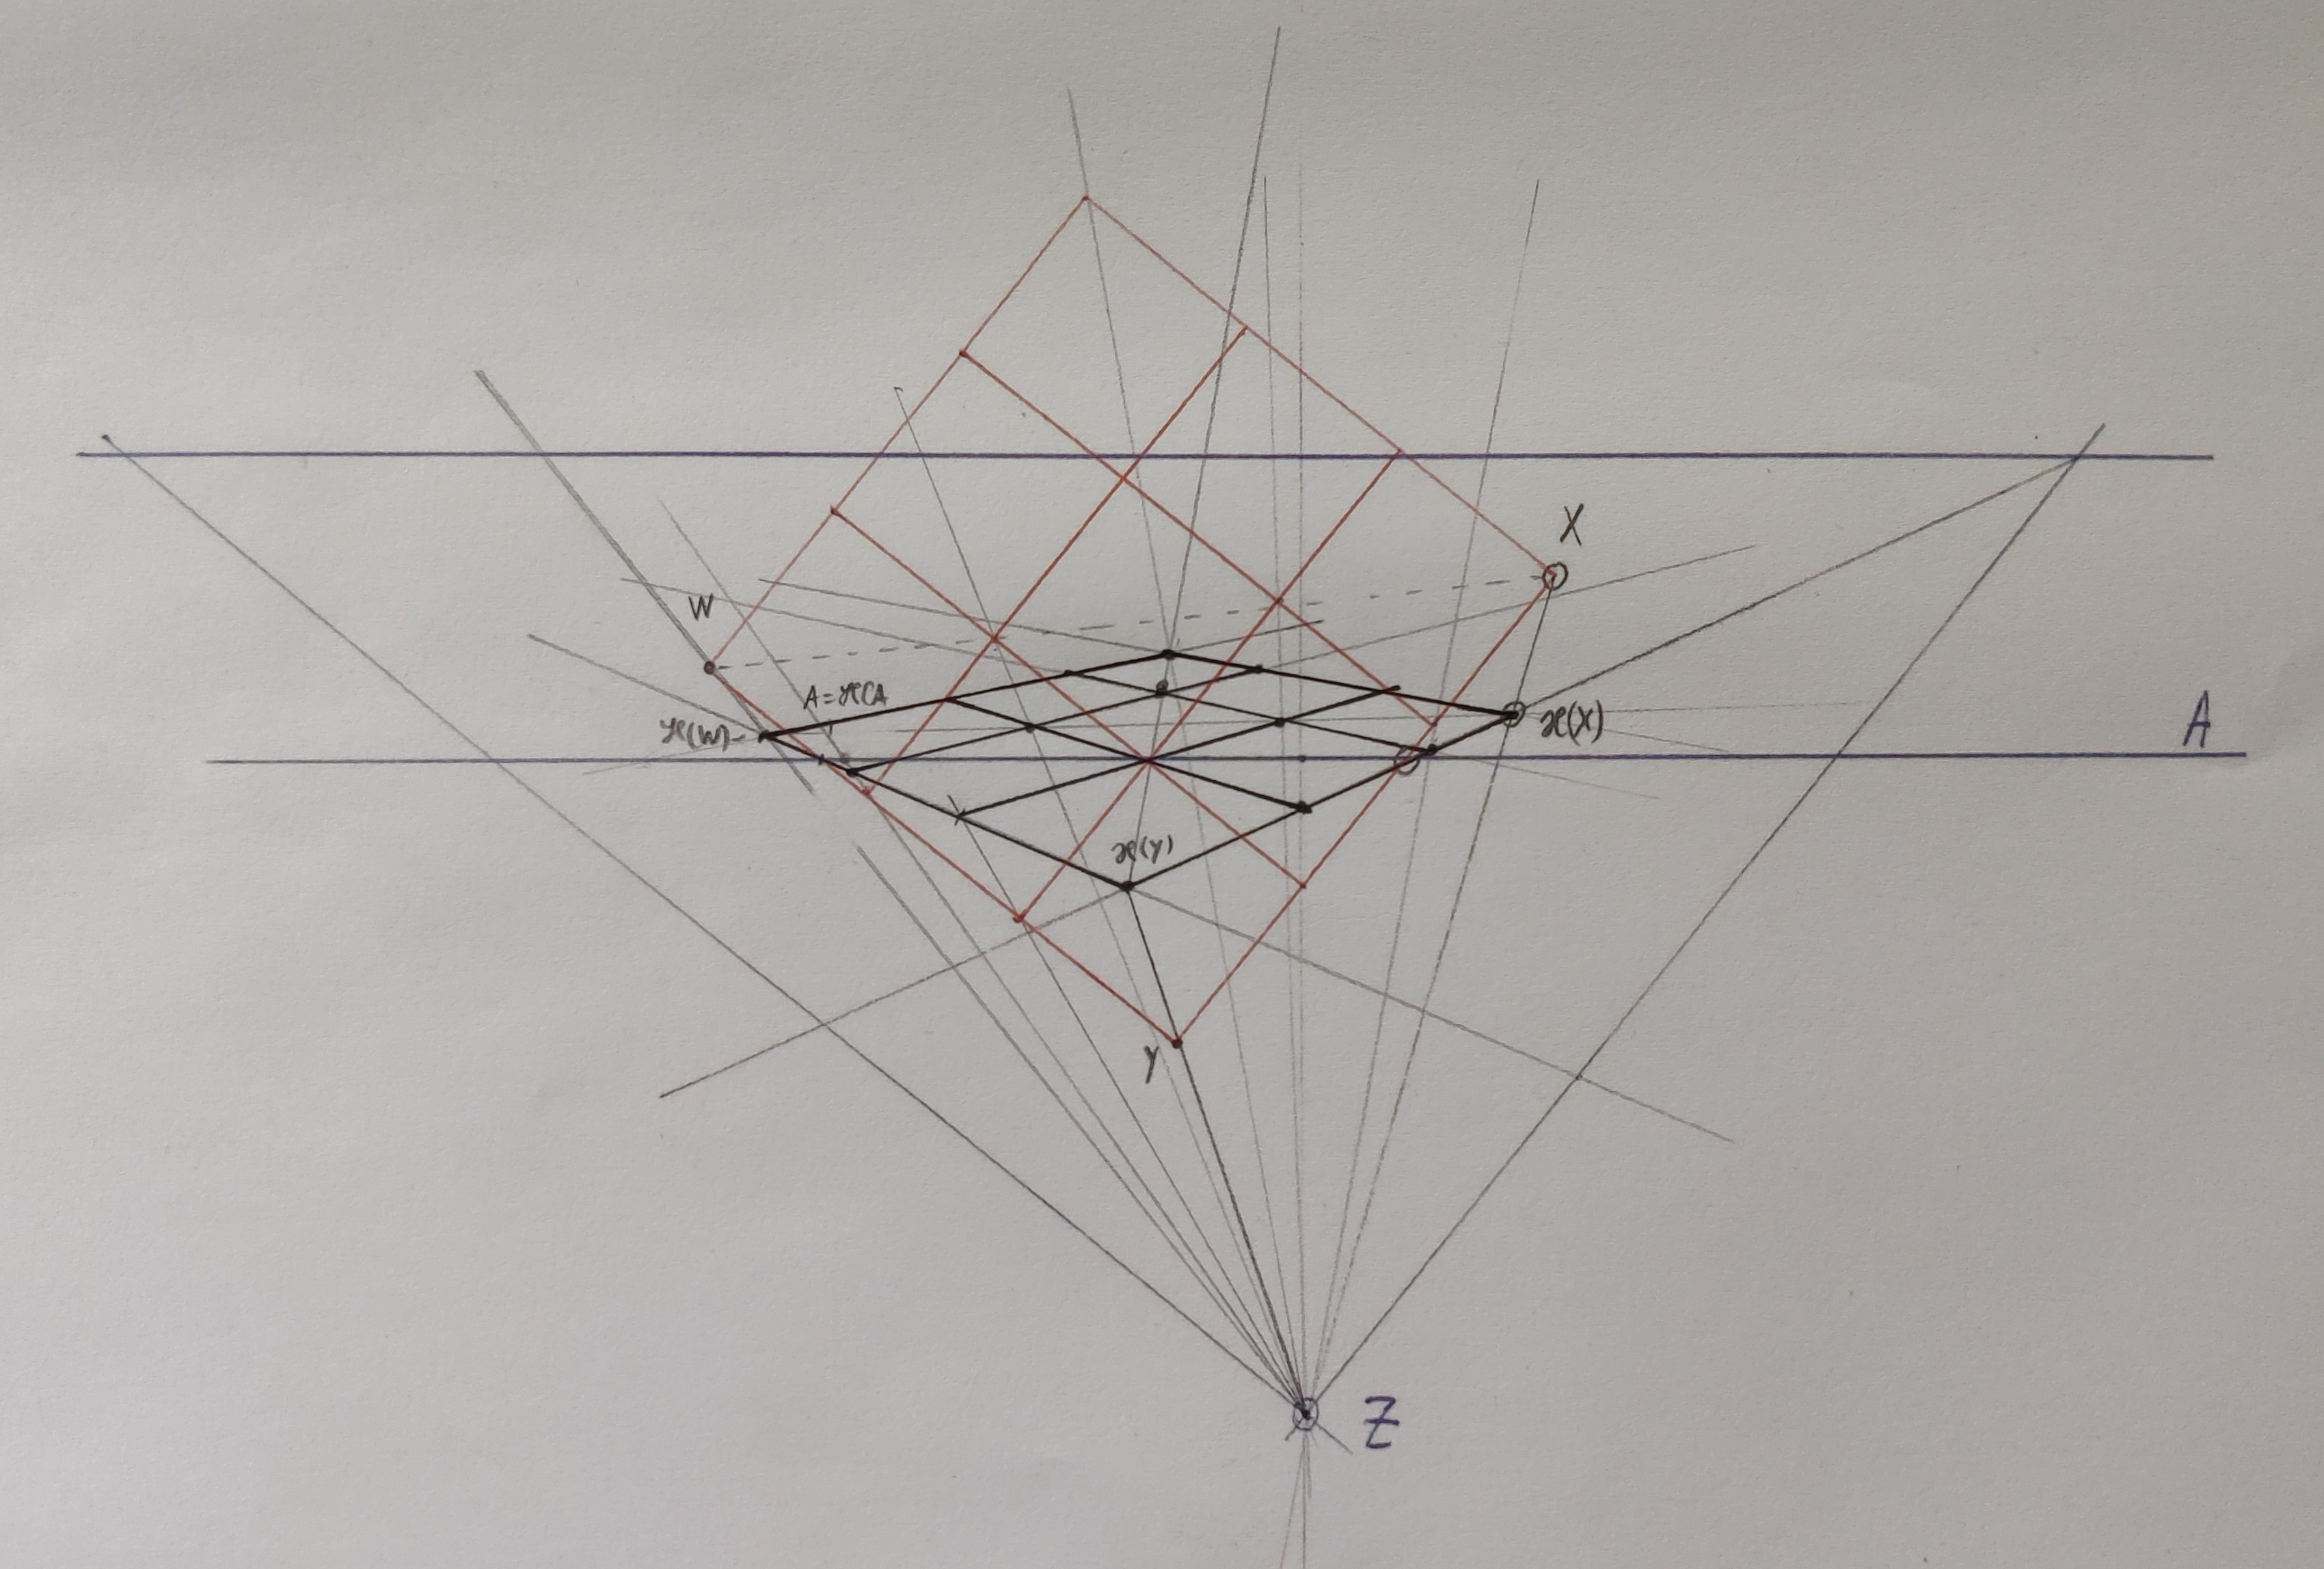 X
W
A=ℋ(A
ℋ(W)
ℋ(X)
A
ℋ(Y)
Y
Z